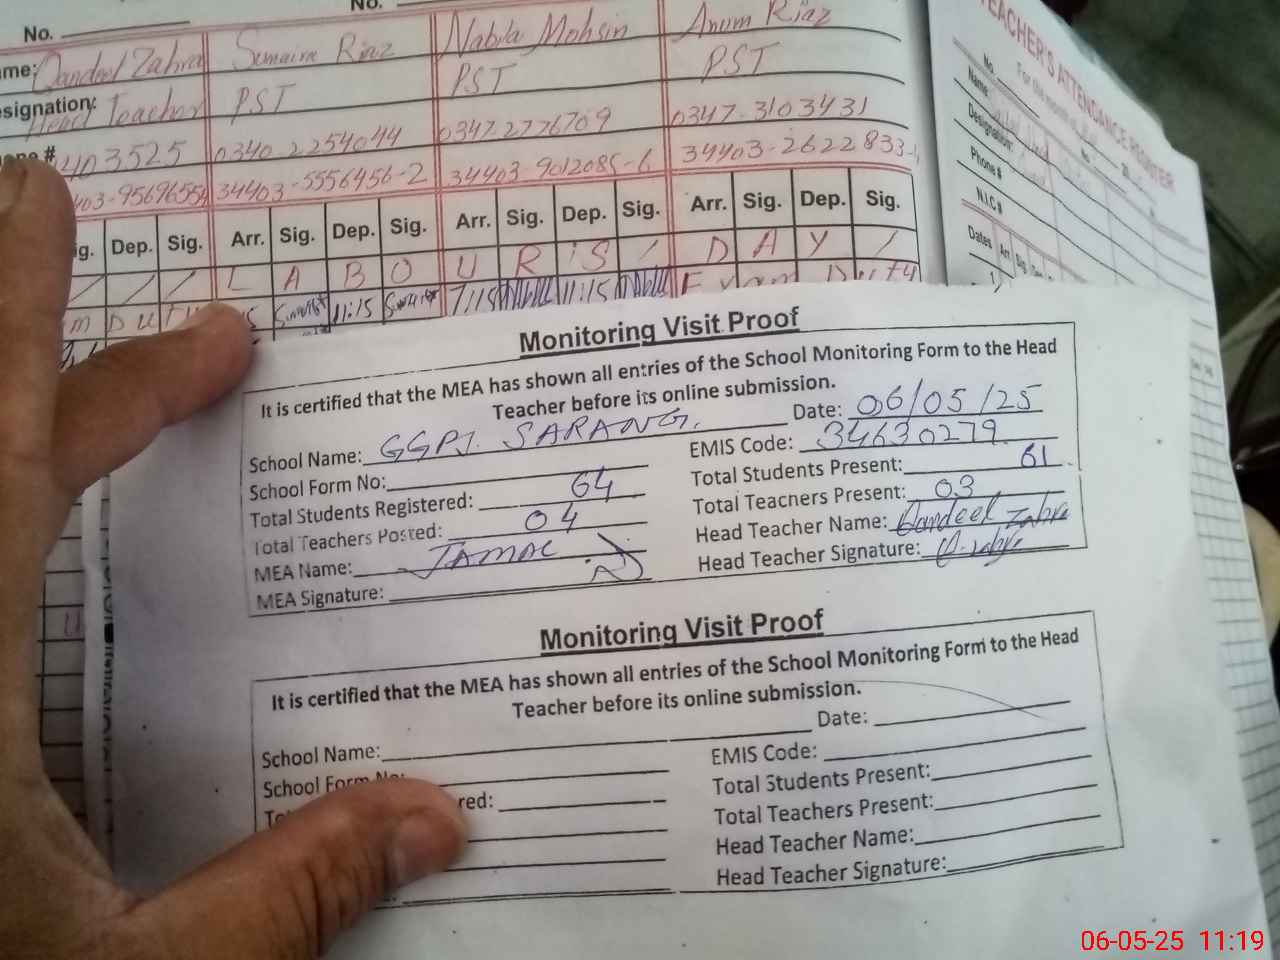 No.
No.
ame: Qandeel Zahra Sumaira Riaz Nabila Mohsin Anum Riaz
esignation: Head Teacher PST PST PST
one # 403525 0340-2254044 0347-2776709 0347-3103431
403-9569655 34403-5556456-2 34403-9012085-6 34403-2622833-
ig. Dep. Sig. Arr. Sig. Dep. Sig. Arr. Sig. Dep. Sig. Arr. Sig. Dep. Sig.
/ / / L A B O U R 'S / D A Y /
m Du 11:15 7:15 11:15 Exam Duty
TEACHER'S ATTENDANCE REGISTER
No.
For the month
No
20
Name:
Designation:
Phone #
N.I.C #
Dates Arr. Sig.
Monitoring Visit Proof
It is certified that the MEA has shown all entries of the School Monitoring Form to the Head
Teacher before its online submission.
Date: 06/05/25
School Name: GGPS. SARANG.
EMIS Code: 34630279
School Form No:
Total Students Present: 61
Total Students Registered: 64
Total Teachers Present: 03
Total Teachers Posted: 04
Head Teacher Name: Qandeel Zahra
MEA Name: JAMAL
Head Teacher Signature: Q. zahra
MEA Signature:
Monitoring Visit Proof
It is certified that the MEA has shown all entries of the School Monitoring Form to the Head
Teacher before its online submission.
Date:
School Name:
EMIS Code:
School Form No:
Total Students Present:
To red:
Total Teachers Present:
Head Teacher Name:
Head Teacher Signature:
06-05-25 11:19